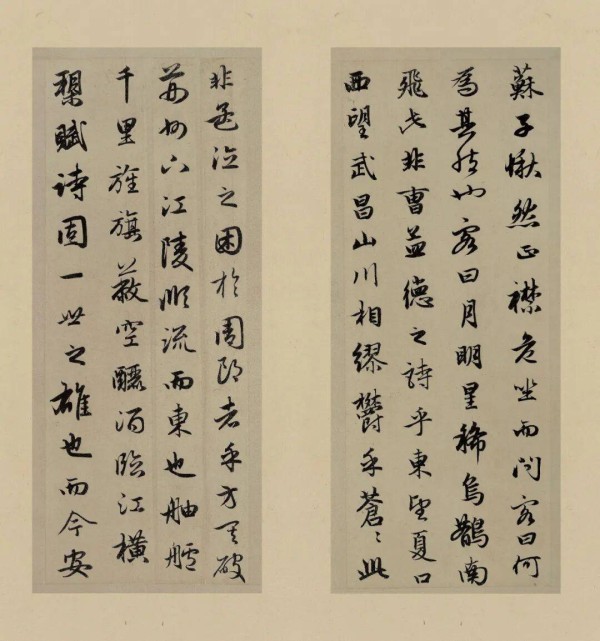 蘇子愀然正襟危坐而問客曰何
為其然也客曰月明星稀烏鵲南
飛此非曹孟德之詩乎東望夏口
西望武昌山川相繆鬱乎蒼〻此
非孟德之困於周郎者乎方其破
荊州下江陵順流而東也舳艫
千里旌旗蔽空釃酒臨江橫
槊賦詩固一世之雄也而今安